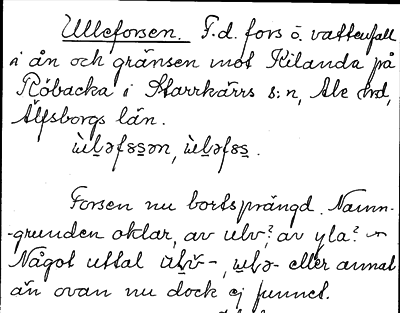 Ulleforsen. F.d. fors o. vattenfall
i ån och gränsen mot Kilanda på
Röbacka i Starrkärrs s:n, Ale hd,
Älfsborgs län.

Forsen nu bortsprängd. Namn-
-grunden oklar, av ulv? av yla? –
Något uttal eller annat
än ovan nu dock ej funnet.